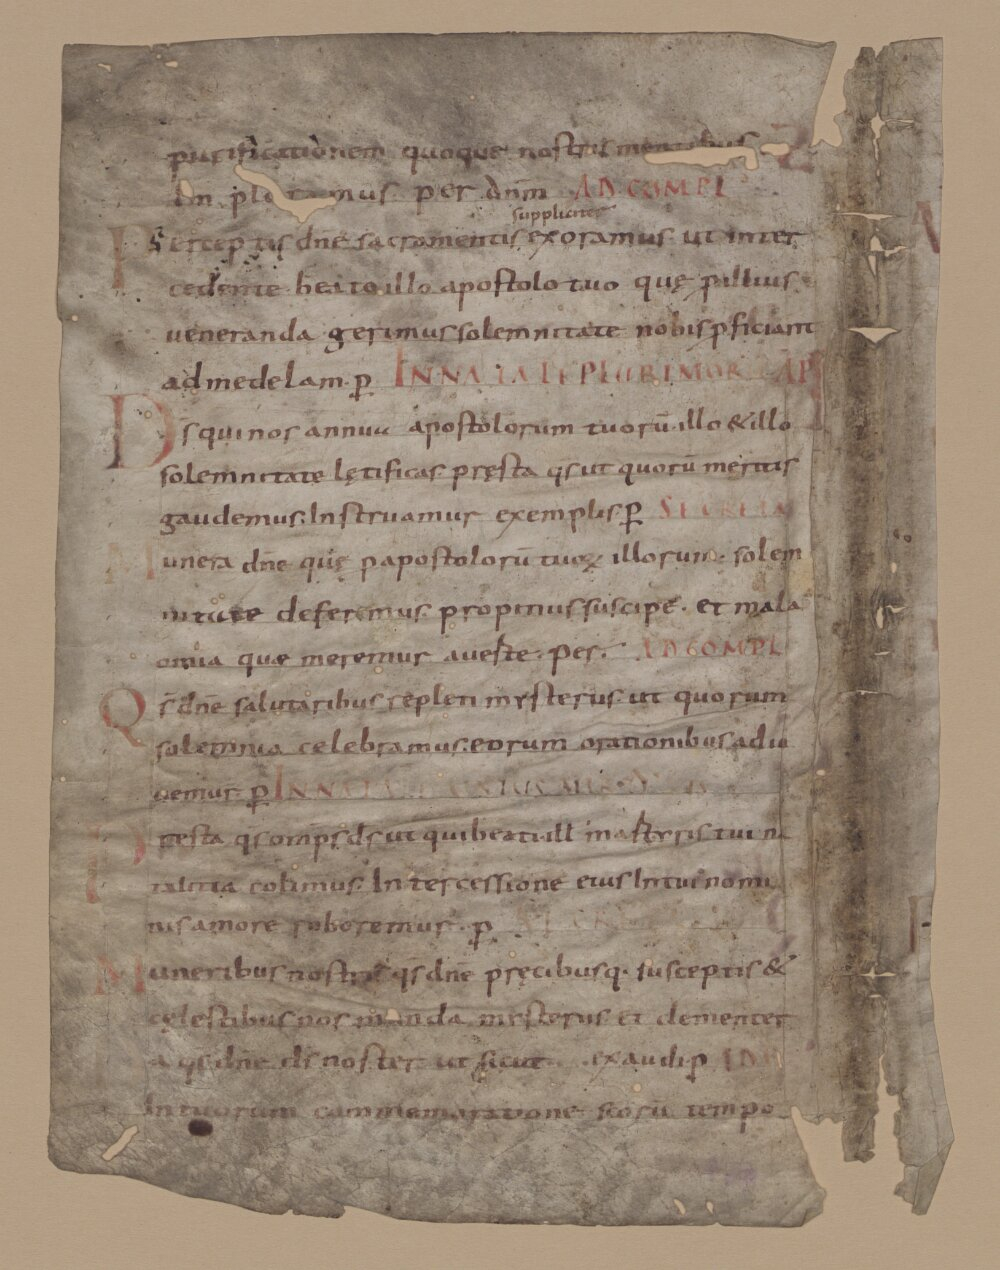 purificationem quoque nostris mentibus
mus per dnm AD COMPL
suppliciter
Perceptis dne sacramentis exoramus ut inter
cedente beato illo apostolo tuo quę p illius
veneranda gerimus solemnitate nobis pficiant
ad medelam. p IN NATALE PLURIMOR AP
Ds qui nos annua apostolorum tuorū illo & illo
solemnitate lętificas pręsta qs ut quorū meritis
gaudemus. Instruamur exemplis. p SECRETA
Munera dne quę p apostolorū tuoꝝ illorum. solem
nitate deferimus. propitius suscipe. et mala
omia quæ meremur averte. per. AD COMPL
Qs dne salutaribus repleti mysteriis. ut quorum
solemnia celebramus. eorum orationibus adiu
vemur. p IN NATA
Pręsta qs omps ds ut qui beati ill martyris tui na
talitia colimus. Intercessione eius In tui nomi
nis amore roboremur. p SECR
Muneribus nostris qs dne pręcibusq. susceptis &
cęlestibus nos munda mysteriis et clementer
a qs dne ds noster ut sicut exaudi. p
In tuorum commemoratione scorū tempo